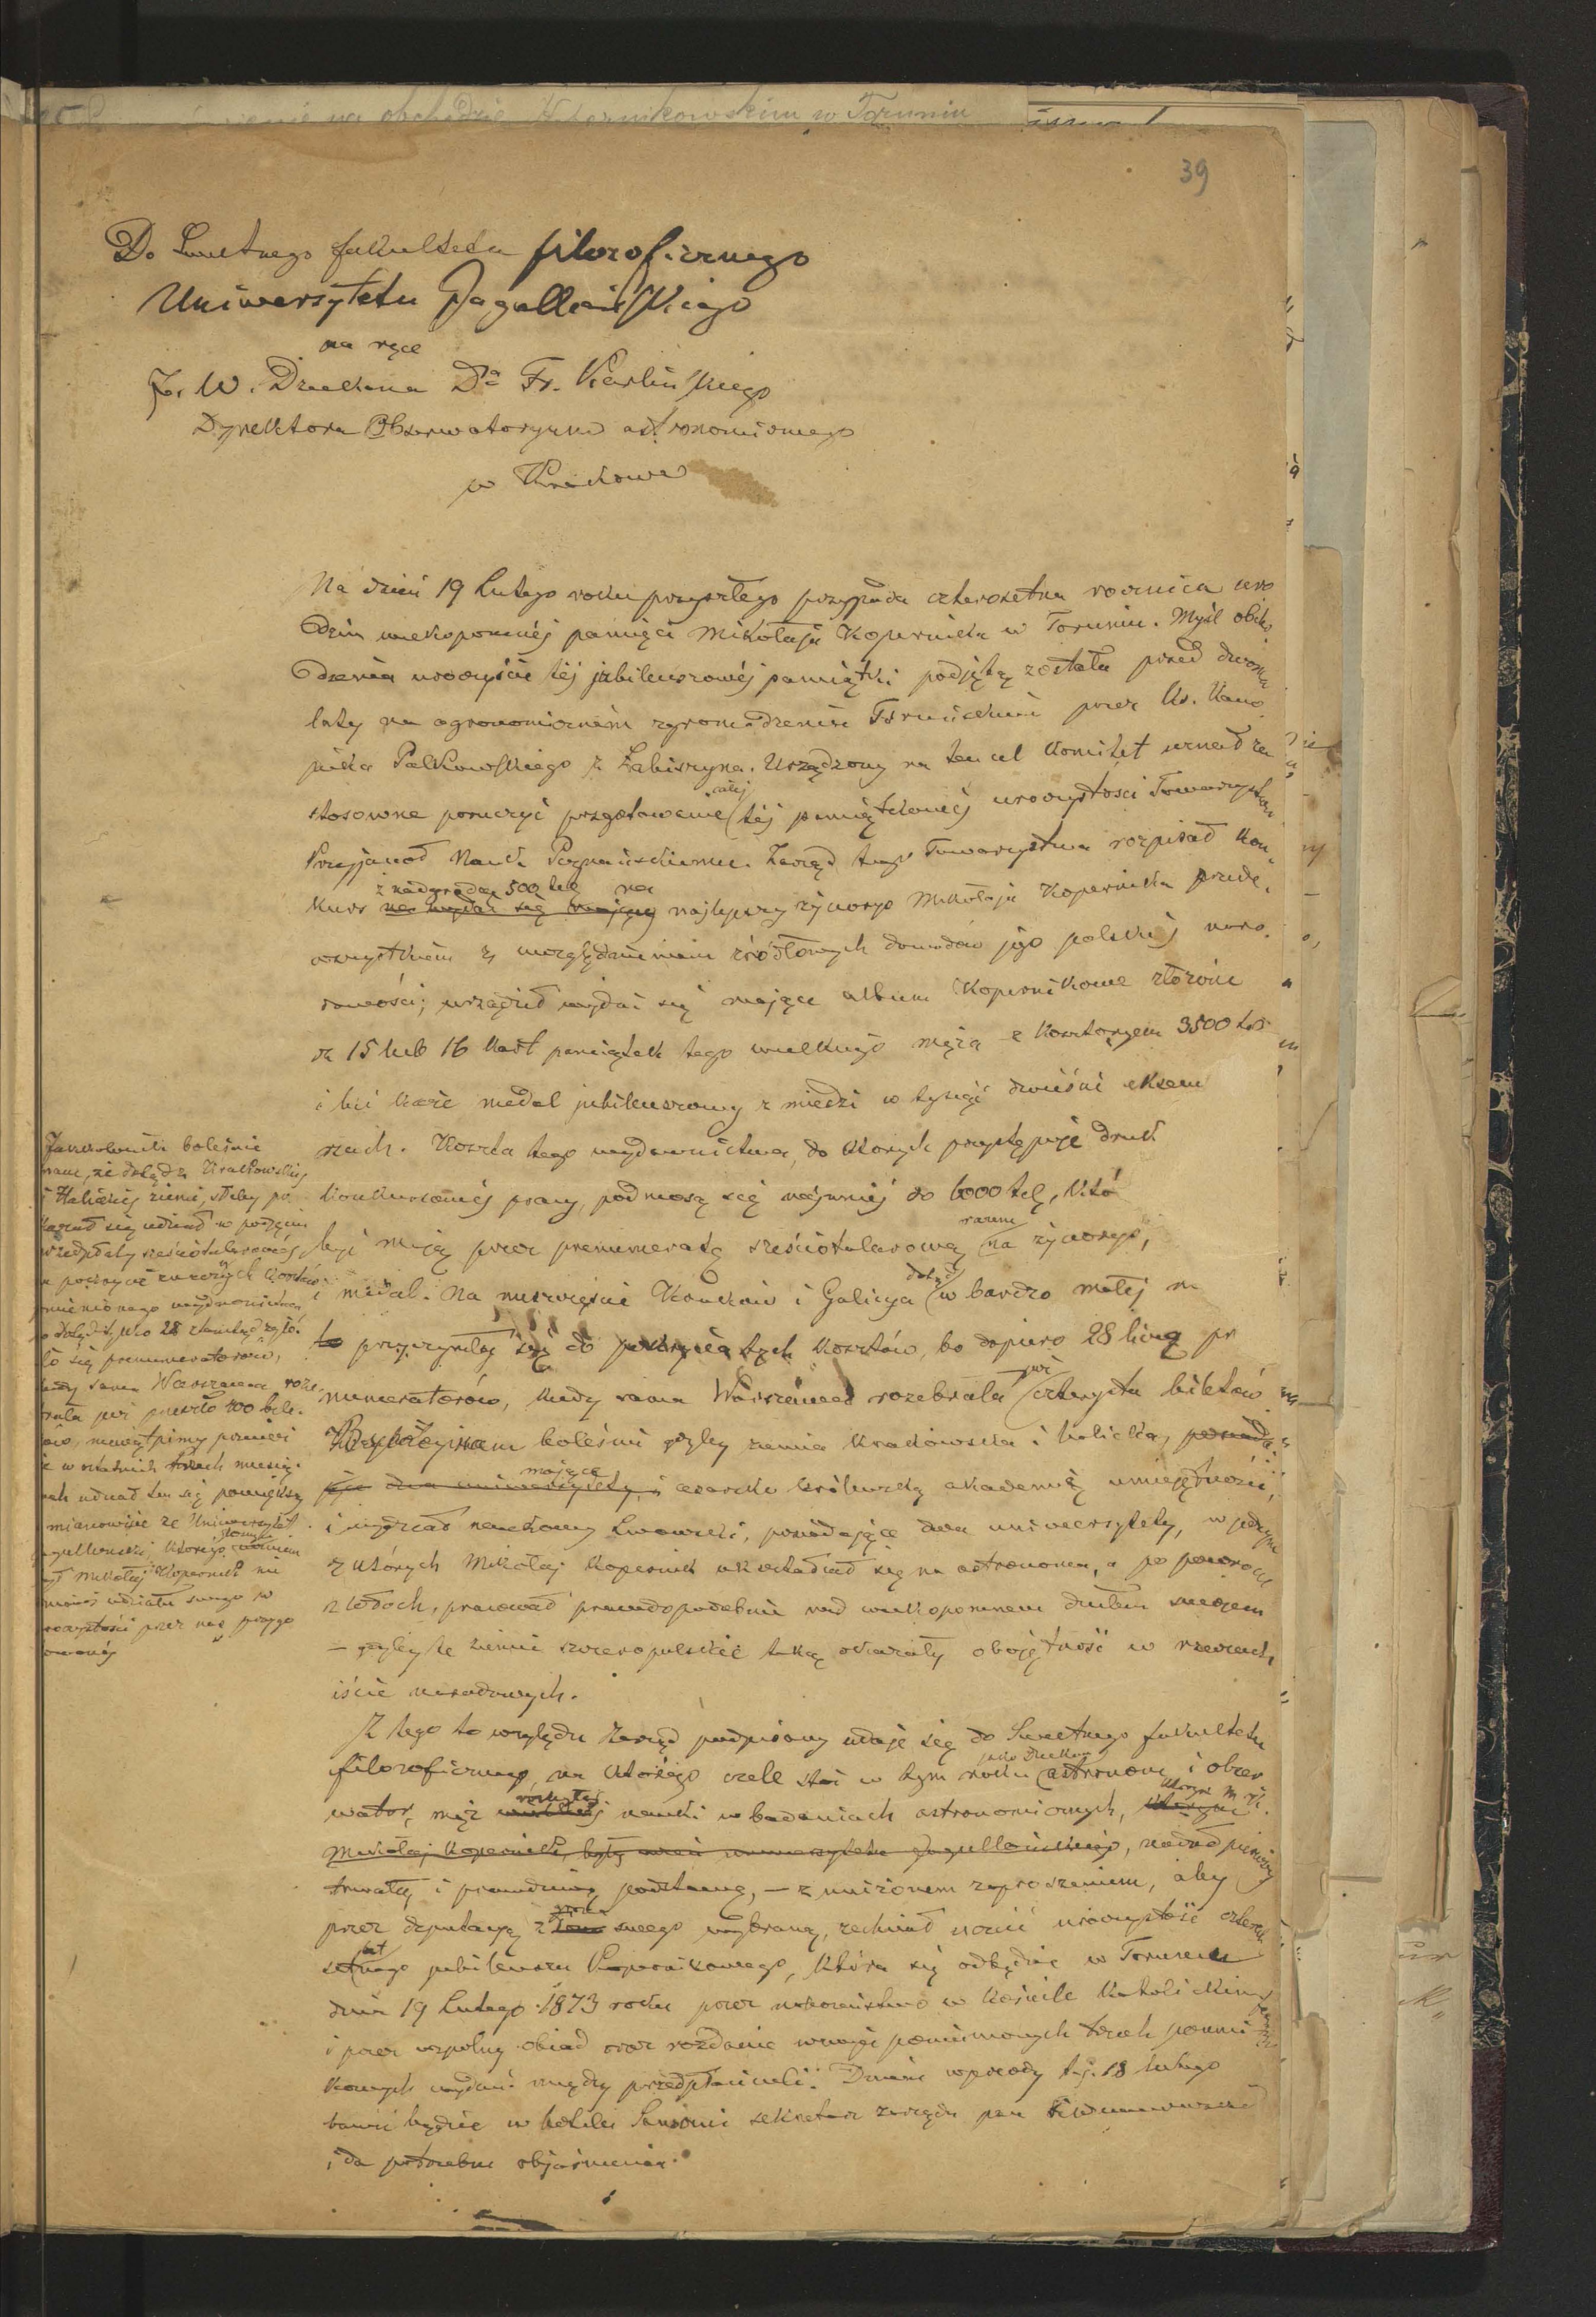 na obchodzie Kopernikowskim w Toruniu
39
Do Świetnego fakultetu filozoficznego
Uniwersytetu Jagiellońskiego
na ręce
J. W. Dziekana Dra Fr. Karlińskiego
Dyrektora Obserwatoryum astronomicznego
w Krakowie
Na dzień 19 Lutego roku przyszłego przypada czterosetna rocznica uro
dzin wiekopomnéj pamięci Mikołaja Kopernika w Toruniu. Myśl obcho
dzenia uroczyście téj jubileuszowéj pamiątki podjętą została przed dwoma
laty na agronomiczném zgromadzeniu Toruńskiem przez Ks. Kano
nika Polkowskiego z Łabiszyna. Urządzony na ten cel Komitet uznał za
stosowne poruczyć przygotowanie całéj téj pamiątkowéj uroczystości Towarzystwu
Przyjaciół Nauk Poznańskiemu. Zarząd tego Towarzystwa rozpisał kon
kurs z nadgrodą 500 tal na najlepszy życiorys Mikołaja Kopernika przede
wszystkiem z uwzględnieniem źródłowych dowodów jego polskiéj naro
dowości; urządził wydać się mające album Kopernikowe złożone
z 15 lub 16 kart pamiątek tego wielkiego męża z kosztorysem 3500 tal
i bić każe medal jubileuszowy z miedzi w tysiąc dwieście eksem
rzach. Koszta tego wydawnictwa, do których przystępuje druk
konkursowéj pracy, podnoszą się najmniéj do 6000 tal, któ
być mają przez prenumeratę sześciotalarową razem na życiorys,
i medal. Na nieszczęście Kraków i Galicya dotąd w bardzo małéj m
to przyczyniły się do pokrycia tych kosztów, bo dopiero 28 liczą pr
numeratorów, kiedy sama Warszawa rozebrała już czterysta biletów
boleśnie gdyby ziemia krakowska i halicka, posiada
jące dwa uniwersytety, i mające cesarsko królewską akademię umiejętności,
i wydział naukowy Lwowski, posiadające dwa uniwersytety, w jednym
z których Mikołaj Kopernik ukształcił się na astronoma, a po powrocie
z Włoch, pracował prawdopodobnie nad wiekopomnem dziełem swojem
— gdyby te ziemie szczeropolskie taką okazały obojętność w rzeczach
iście narodowych.
Z tego to względu Zarząd podpisany udaje się do Świetnego fakultetu
filozoficznego, na którego czele stoi w tym roku jako Dziekan astronom i obser
wator, mąż nauki w badaniach astronomicznych, którym M. K.
Mikołaj Kopernik, były uczeń uniwersytetu Jagiellońskiego, nadał pierwszy
trwałą i prawdziwą podstawę, — z uniżonem zaproszeniem, aby
przez deputacyą z grona swego wybraną, zechciał uczcić uroczystość cztero
setnego jubileuszu Kopernikowego, która się odbędzie w Toruniu
dnia 19 Lutego 1873 roku przez nabożeństwo w kościele katolickim
i przez wspólny obiad oraz rozdanie wyżej pomienionych trzech pomni
kowych wydań między przedpłacicieli. Dniem wprzódy t.j. 18 lutego
bawić będzie w hotelu Sanssouci sekretarz zarządu pan
i da potrzebne objaśnienia.
boleśnie
nam, że dotąd z Krakowskiéj
i Halickiéj ziemi, słaby po
kazał się udział w podjęciu
przedpłaty sześciotalarowéj
na pokrycie znacznych kosztów
mienionego wydawnictwa
dotąd tylko 28 ztamtąd zgło
iło się prenumeratorów,
kiedy sama Warszawa roze
brała już przeszło 400 bile
tów, niewątpimy przecież
że w ostatnich trzech miesią
cach udział ten się powiększy
mianowicie że Uniwersytet
Jagielloński, którego
był Mikołaj Kopernik nie
udziału swego w
uroczystości przez nas przygo
towanéj